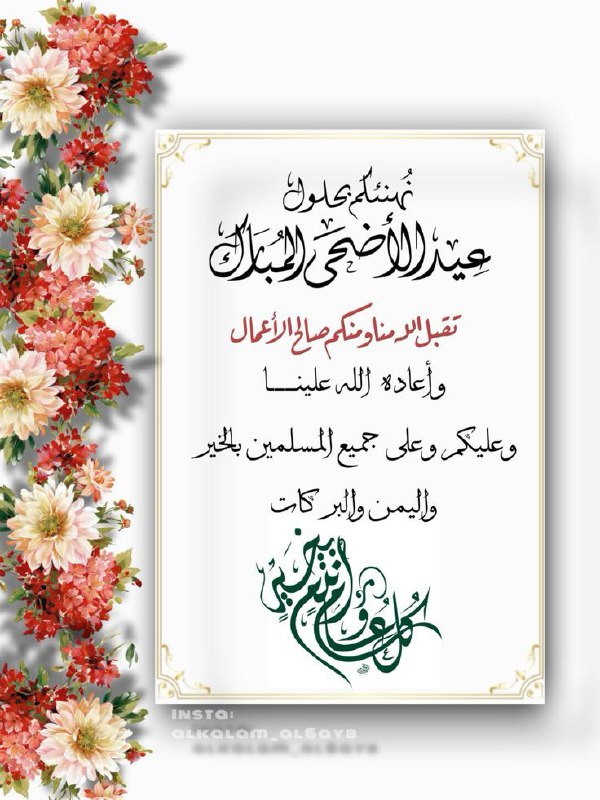 نُهنئكم بحلول
عِيد الأضحَى المُبَارك
تقبل الله منا ومنكم صالح الأعمال
وأعاده الله علينـــا
وعليكم وعلى جميع المسلمين بالخير
واليمن والبركات
كُل عَام وَأنتُم بِخَيرٍ
INSTA:
ALKALAM_AL6AYB